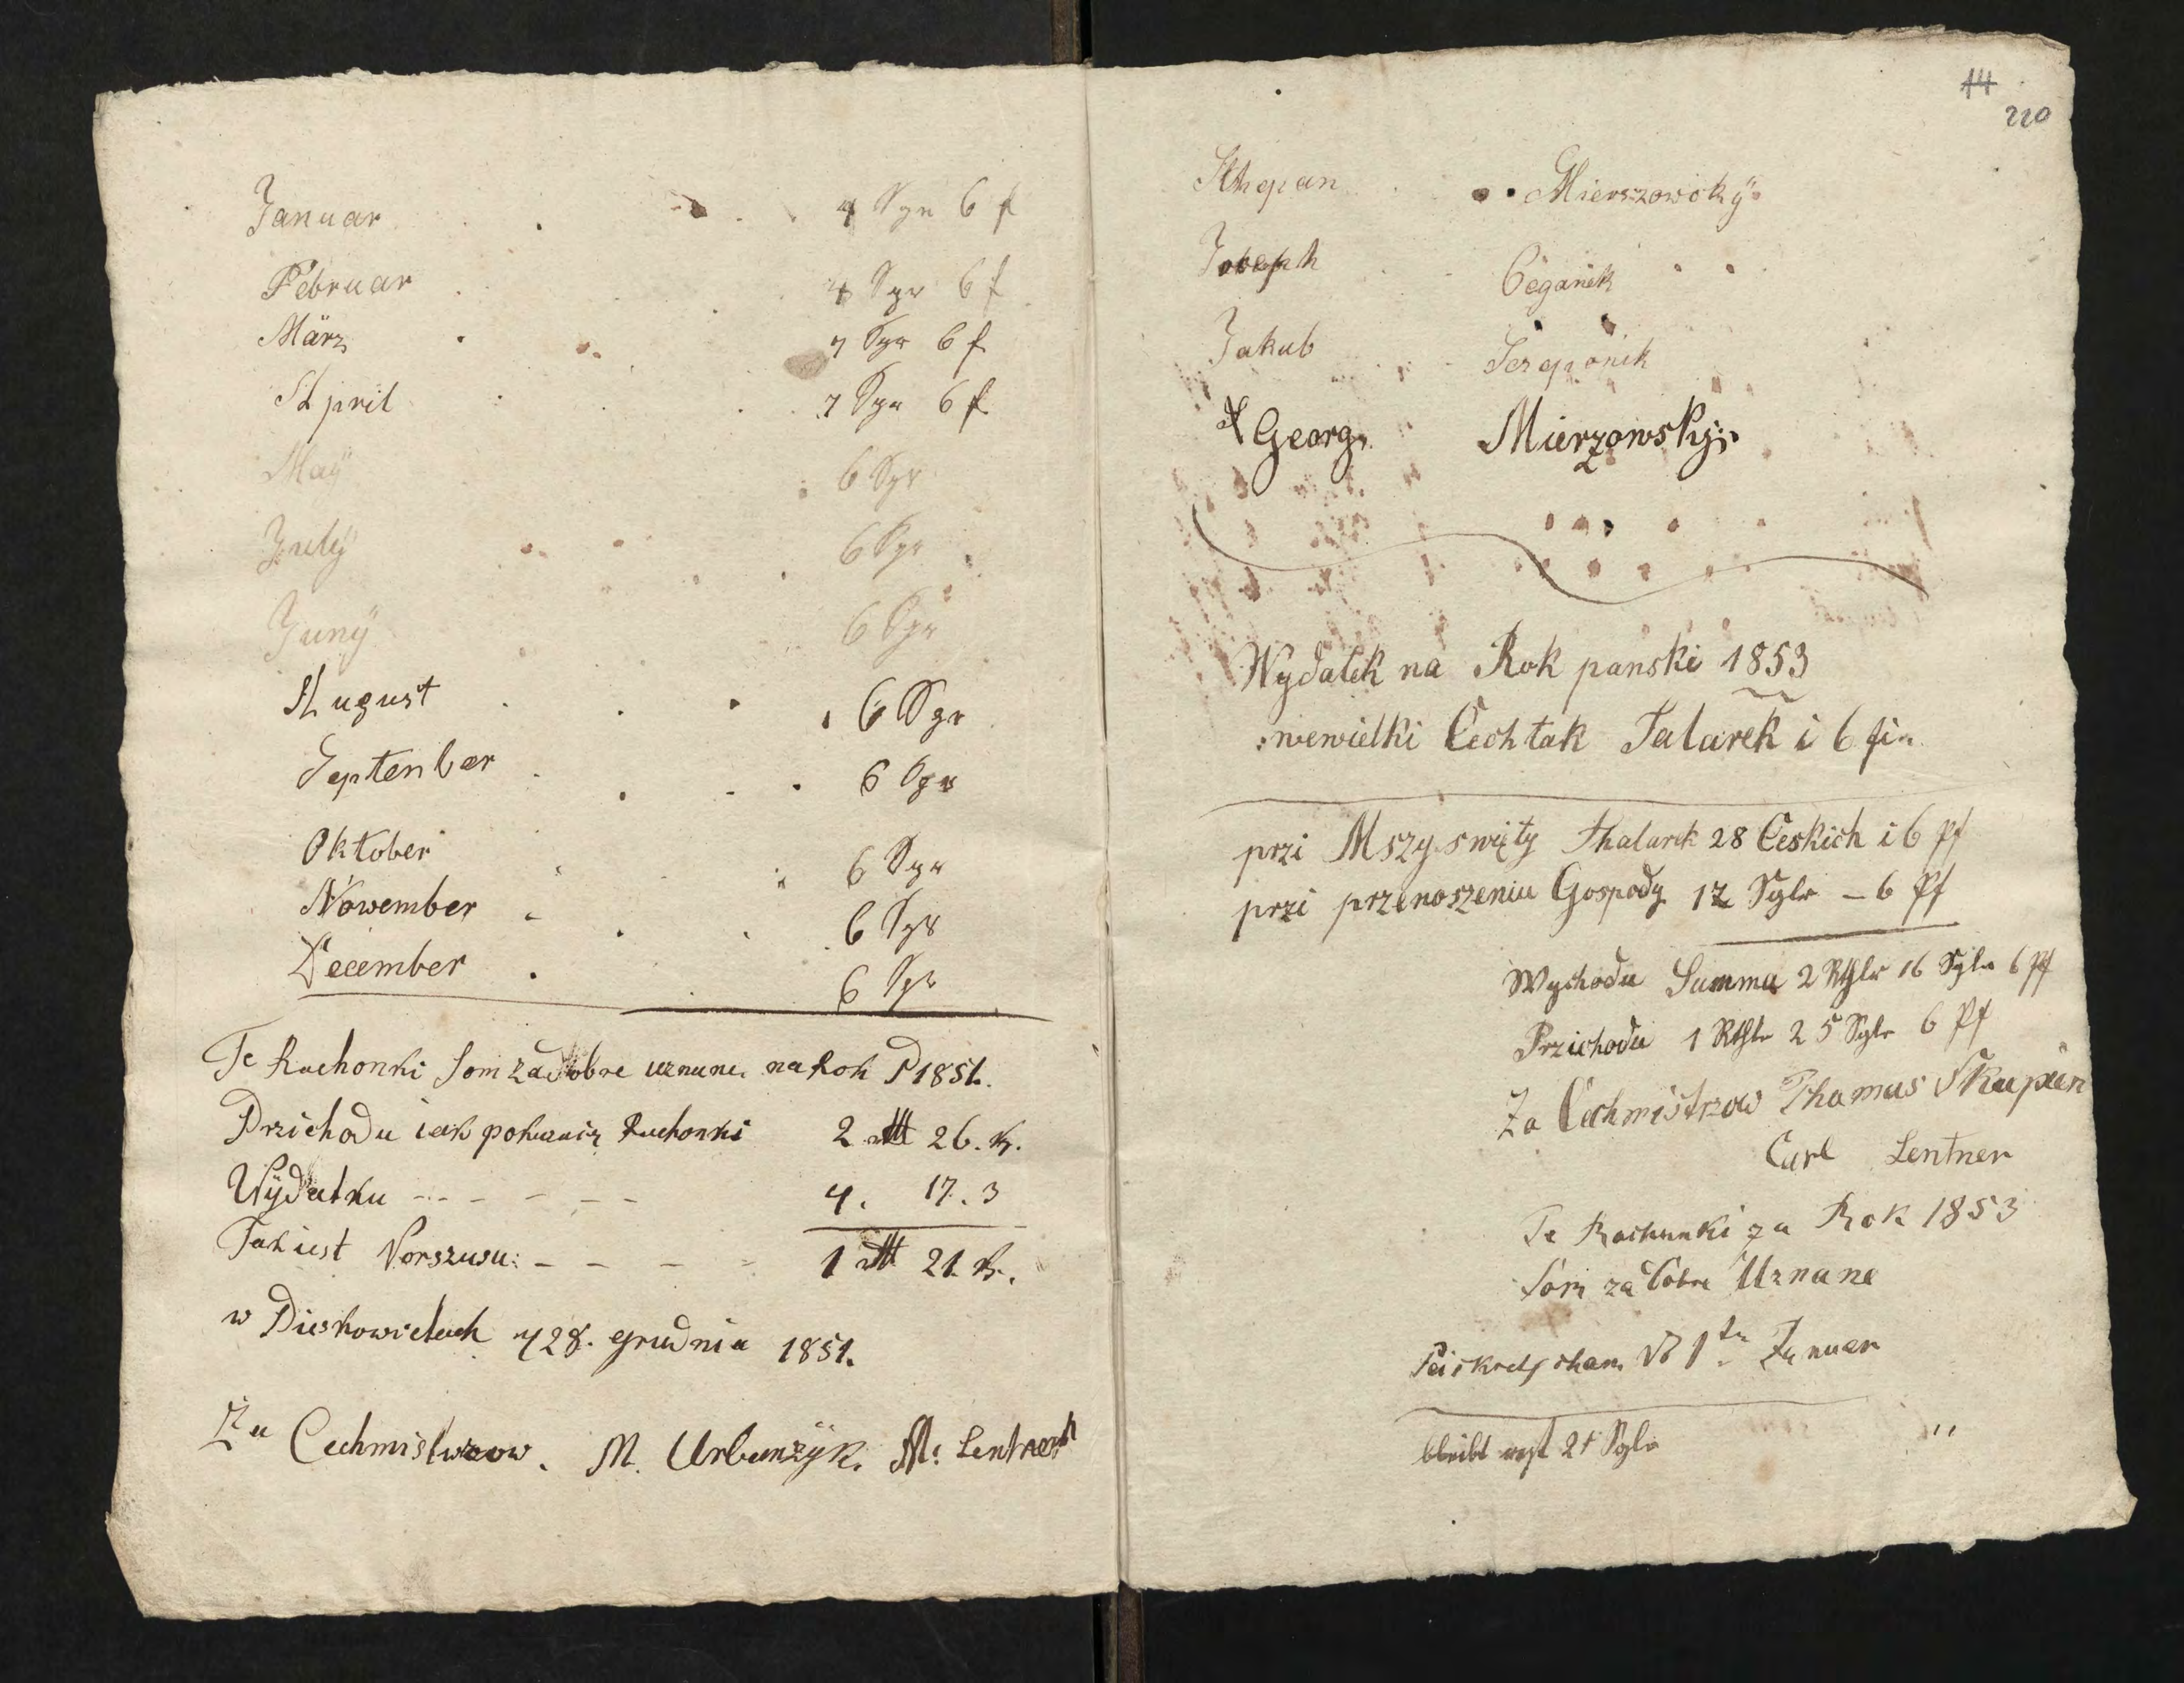 Januar 4 Sgr 6 f
Februar 4 Sgr 6 f
März 7 Sgr 6 f
April 7 Sgr 6 f
Maÿ 6 Sgr
Julÿ 6 Sgr
Junÿ 6 Sgr
August 6 Sgr
Septenber 6 Sgr
Oktober 6 Sgr
Nowember 6 Sgr
December 6 Sgr
Te Rachonki som za dobre uznane na Rok P 1851.
Przichodu iak pokazuie Rachonki 2 26.
Wÿdatku - - - - - - 4. 17. 3
Tak iest Vorszusu: - - - - 1 21.
w Pieskowicach 28. grudnia 1851.
Za Cechmistrzow. M. Urbanzÿk. M: Lentner
14
220
Sthepan Mierszowskÿ
Joseph Ceganek
Jakub Sczeponik
Georg Mierzowskÿ
Wydatek na Rok panski 1853
wewielki Cechtak Talarek i 6 fi
przi Mszy swięty Thalarek 28 Ceskich i 6 Pf
przi przenoszeniu Gospody 17 Sglr - 6 Pf
Wychodu Summa 2 Rthlr 16 Sglr 6 Pf
Przichodu 1 Rthlr 25 Sglr 6 Pf
Za Cechmistrzow Thomas Skupin
Carl Lentner
Te Rachunki za Rok 1853
som za dobre Uznane
Peiskretscham 1tn Januar
bleibt rest 21 Sglr